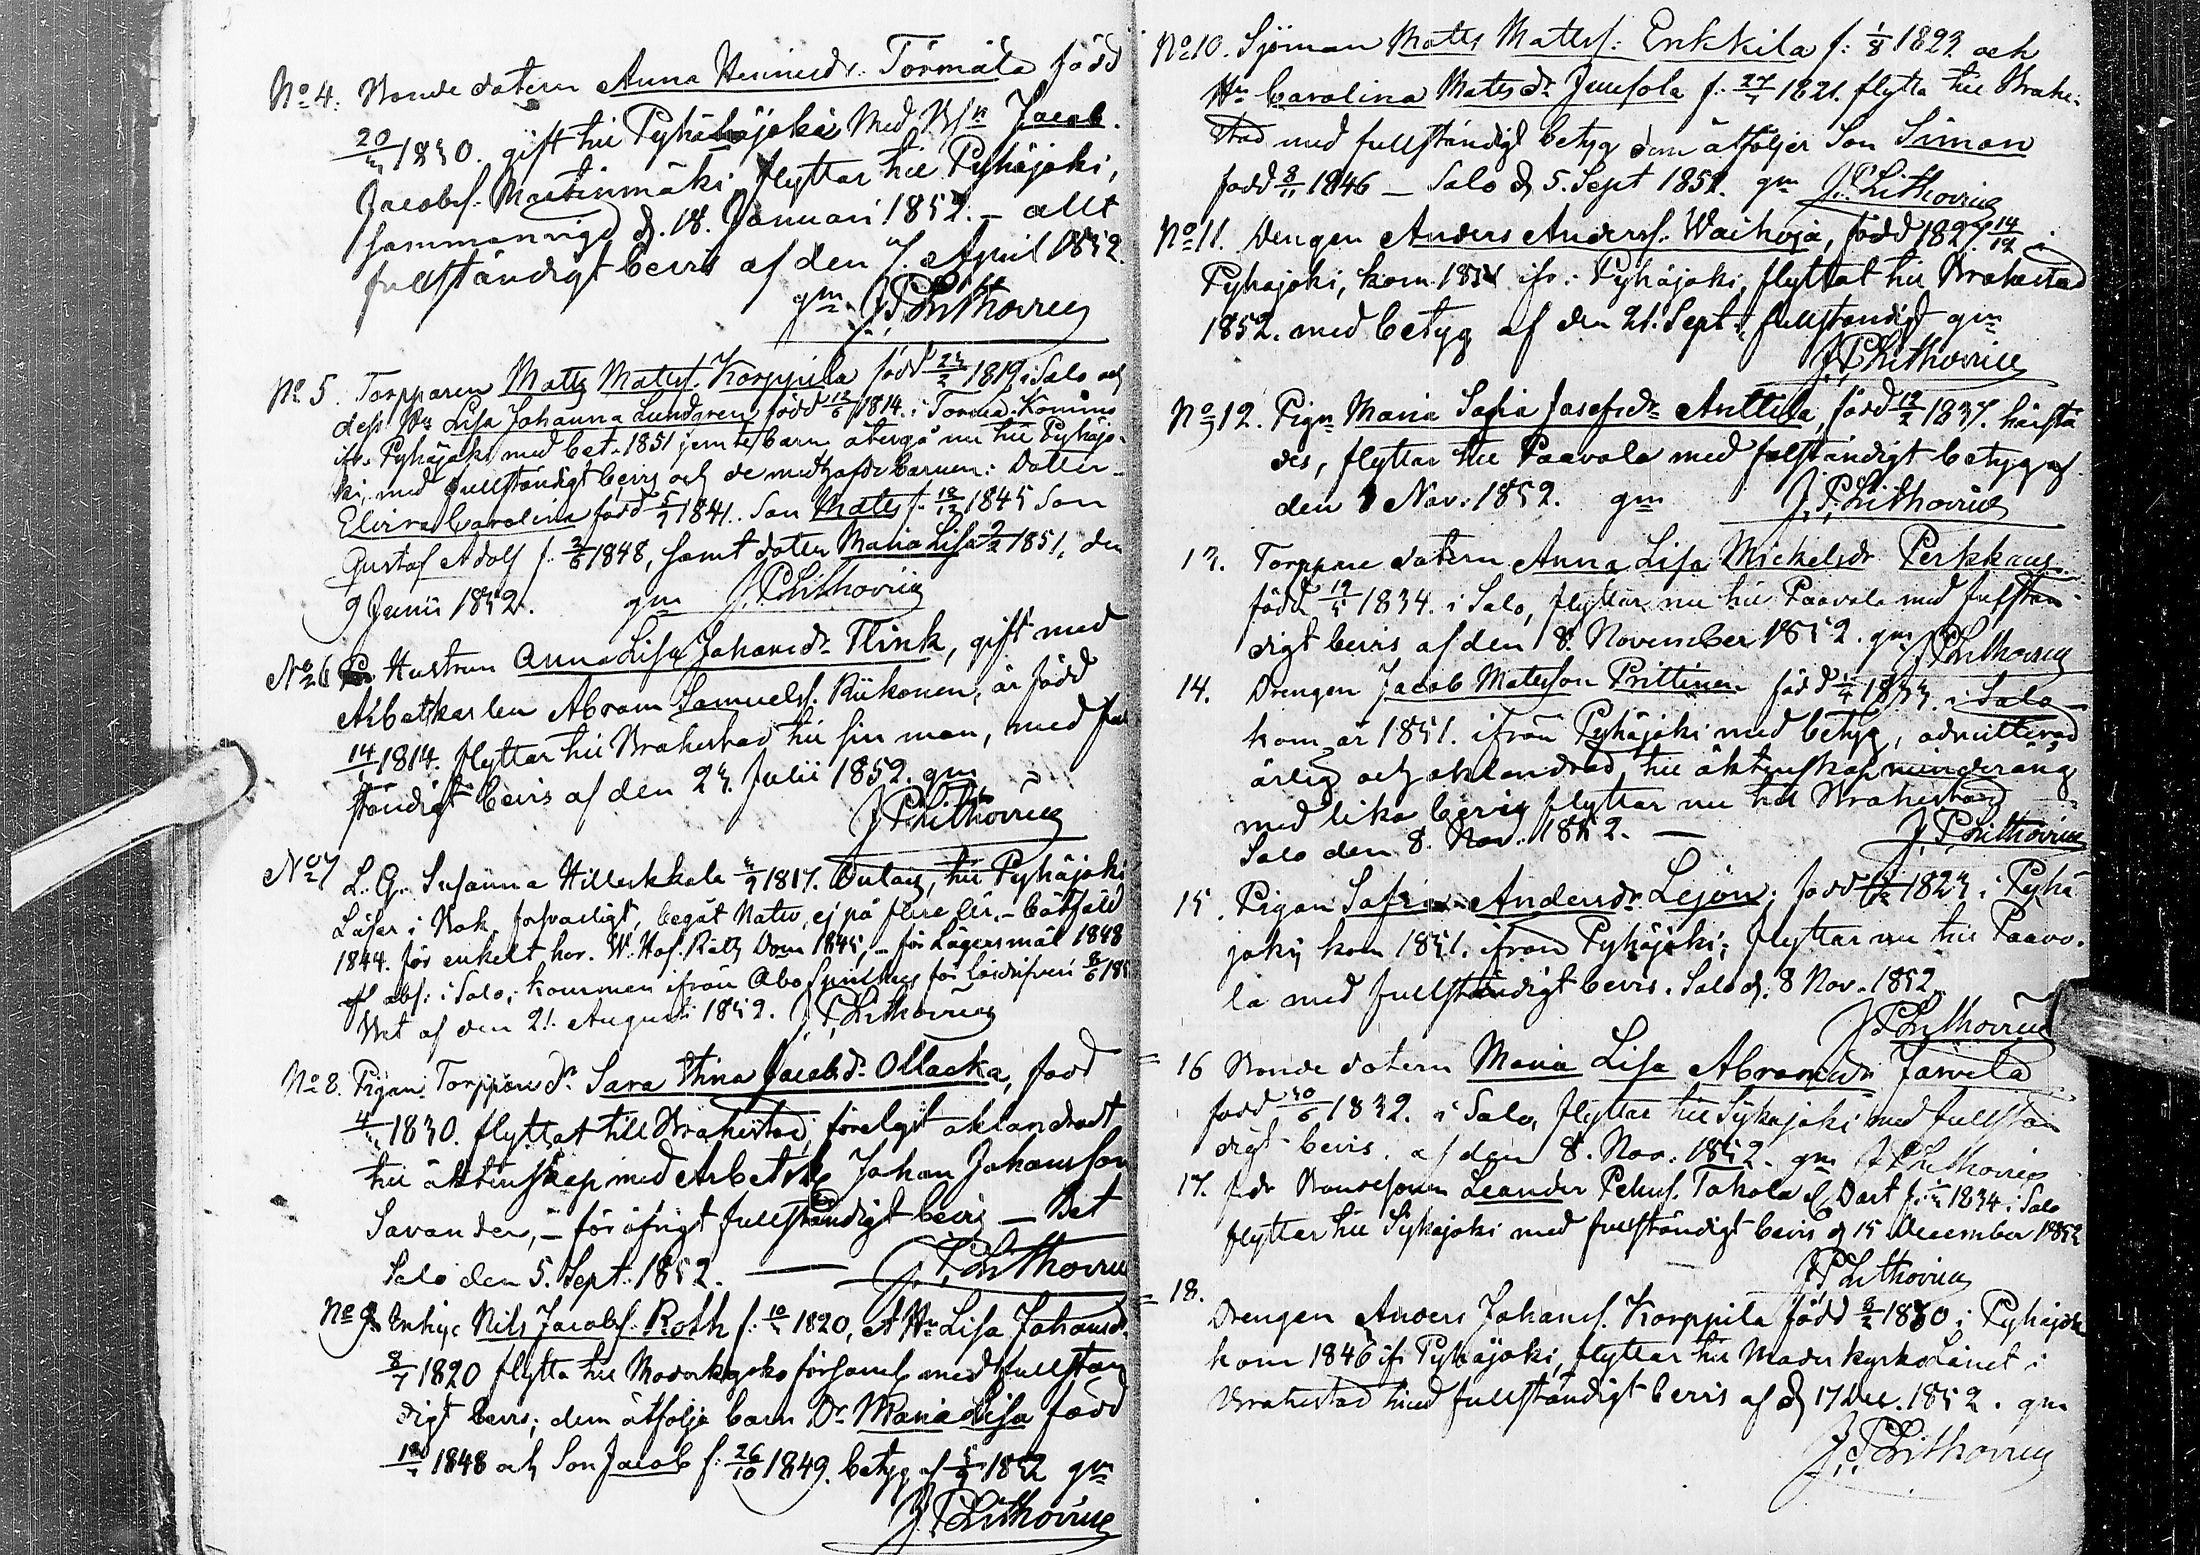 No 4. Bonde dotern Anna Henricsdr. Törmälä född
20/ 1830. gift till Pyhäjoki med Bsn Jacob
Jacobs. Martinmäki, flyttar till Pyhäjoki,
d. 18. Januari 1852. – allt
fullständigt bevis af den 7 April 1852.
gm J. P. Lithovius
No 5. Torparen Matts Matss. Korppila född 1819 i Salo och
dess Hu Lisa Johanna Lundgren född 12/6 1814. i
ifr. Pyhäjoki med bet. 1851 jemte barn återgå nu till Pyhäjo-
ki, med fullständigt bevis och de medhafde barnen: Dotter
Elvira Carolina född 1841. Son Matts f. 18/12 1845 Son
Gustaf Adolf f. 1848, samt doter Maria Lisa 1851, den
9 Junii 1852. gm J. P. Lithovius
No 6 Hustrun Anna Lisa Johansdr. Flink, gift med
Arbetskarlen Abram Samuels. Riikonen, är född
14/ 1814. flyttar till Brahestad till sin man, med full
ständigt bevis af den Julii 1852. gm
J. P. Lithovius
No 7 L. G. Susanna Hillukkala 1817. till Pyhäjoki
Läser i Bok, försvarligt, begåt Nattv, ej på flere år. –
1844. för enkelt hor. W. Hof. Rätts Dom 1845, – för Lägersmål 1848
abs: i Salo, kommen ifrån Åbo Spinhus för
Bet af den 21. Augusti 1852. J. P. Lithovius
No 8. Pigan Torppare dr Sara Stina Jacobsdr. Ollakka, född
4/ 1830. flyttat till Brahestad, förelyst oklandradt
till äktenskap med Arbetsk. Johan Johansson
Savander, – för öfrigt fullständigt bevis – Bet
Salo den 5. Sept. 1852. J. P. Lithovius
No 9 Nils Jacobs. Roth f. 10/ 1820, & Hu Lisa Johansdr.
8/7 1820 flytta till Moderkyrko församl. med fullstän
digt bevis; dem åtfölja barn Dr Maria Lisa född
1848 och Son Jacob f. 26/10 1849. betyg af 1852 gm
J. P. Lithovius
No 10. Sjöman Matts Matss. Erkkila f. 1/8 1823 och
Hu Carolina Matsdr Juusola f. 27/ 1821. flytta till Brahe-
stad med fullständigt betyg dem åtföljer Son Simon
född 8/11 1846 – Salo d. 5. Sept 1852. gm J. P. Lithovius
No 11. Drengen Anders Anderss. Waihoja, född 1827 14/12 i
Pyhäjoki, kom 1851 ifr. Pyhäjoki, flyttat till Brahestad
1852. med betyg af den 21. Sept. fullständigt gm
J. P. Lithovius
No 12. Pign Maria Sofia Josefsdr Anttila, född 12/2 1837. härstä
des, flyttar till Paavola med fulständigt betyg af
den 1 Nov. 1852. gm J. P. Lithovius
13. Torppare dotern Anna Lisa Mickelsdr Perkkaus
född 19/ 1834. i Salo, flyttar nu till Paavola med fulstän-
digt bevis af den 8. November 1852. gm J. P. Lithovius
14. Drengen Jacob Matsson Prittinen född 1833. i Salo
kom år 1851. ifrån Pyhäjoki med betyg, admitterad
ärlig och oklandrad, till äktenskap minderårig
med lika bevis flyttar nu till Brahestad
Salo den 8. Nov. 1852. – J. P. Lithovius
15. Pigan Sofia Andersdr Lejon; född 1823 i Pyhä
joki, kom 1851. ifrån Pyhäjoki; flyttar nu till Paavo-
la med fullständigt bevis. Salo d. 8 Nov. 1852.
J. P. Lithovius
16 Bonde dotern Maria Lisa Abramsdr Järvelä
född 30/6 1832. i Salo, flyttar till Sikajoki med fullstän
digt bevis. af den 8. Nov. 1852. gm J. P. Lithovius
17. f.d. Bondesonen Leander Petters. Tokola f. 1834. i Salo
flyttar till Sikajoki med fullständigt bevis d 15 December 1852
J. P. Lithovius
18.
Drengen Anders Johans. Korppila född 8/2 1830 i Pyhäjoki
kom 1846 ifr Pyhäjoki, flyttar till Moderkyrko i
Brahestad med fullständigt bevis af d. 17 Dec. 1852. gm
J. P. Lithovius